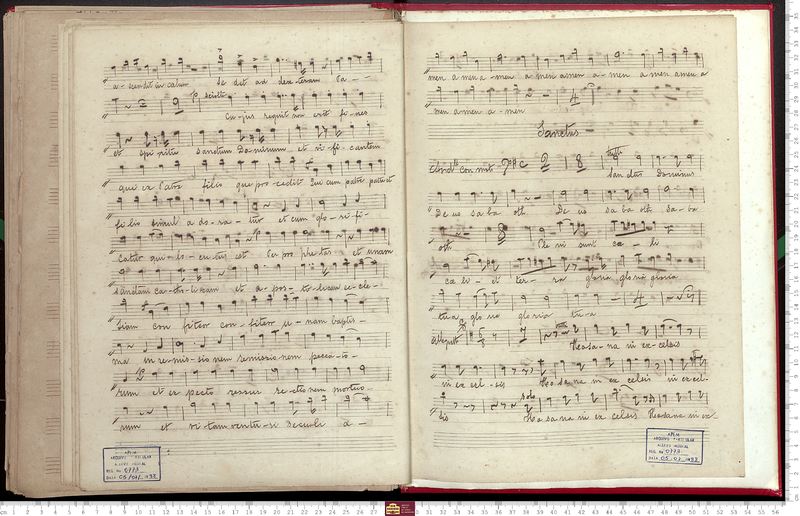 a-scendit in caelum Se det ad dex-teram Pa-
solo
Cu-jus regni non erit fi-nes
et spi-ritu sanctum Dominum et vi-fi-cantem
qui ex Patre filio que pro-cedit Qui cum patre patri et
fi-lio simul a do-ra-tur et cum glo-ri-fi-
catur qui lo-cu-tus est Per pro phe-tas et unam
sanctam ca-tho-li-cam et a pos-to-licam ec-cle-
siam con fiteor con-fiteor u-nam baptis-
ma in re-mis-sio nem remissio nem pecca-to-
rum et ex pecto ressur re-cti-o nem mortuo-
rum et vi-tam ventu-ri Seculi a-
APEM
ARQUIVO PARTICULAR
ACERVO MUSICAL
REG. No 0773
DATA 05/01/1993
men a men a-men a men amen a-men a men amen a
men a men a-men
4
Sanctus
Con moto C 2 8
San ctus Dominus
De us sa ba oth De us sa ba oth sa-ba
oth 8 Ple ni sunt cæ-li
cæ li-et ter-ra gloria gloria gloria
tu a glo ria gloria tu-a
4
Hosa-na in ex-celsis
in ex cel-sis Ho sa na in ex celsis in ex cel-
solo
sis Ho sa na in ex celsis Hosana in ex-
APEM
ARQUIVO PARTICULAR
ACERVO MUSICAL
REG. No 0773
DATA 05.01.1993